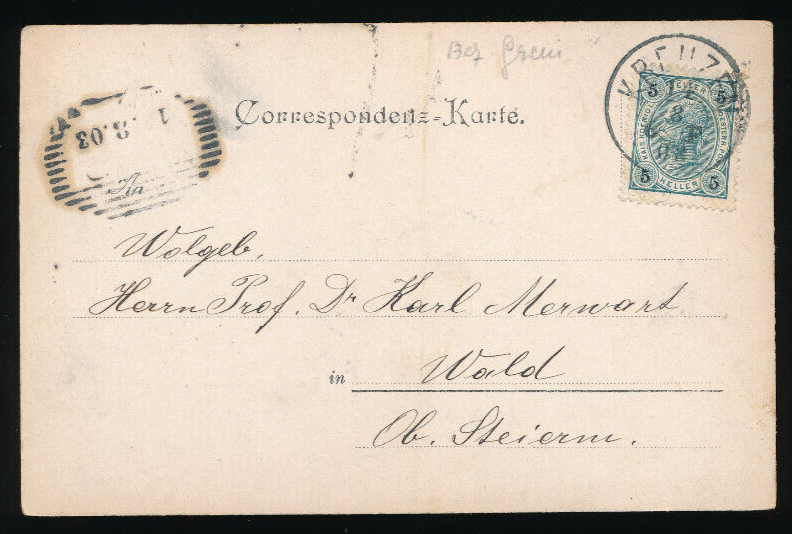 Bez Grein
KREUZEN
Correspondenz-Karte.
5 5
HELLER
5 5
8.03
An
Wolgeb.
Herrn Prof. Dr Karl Merwart
in Wald
Ob. Steierm.